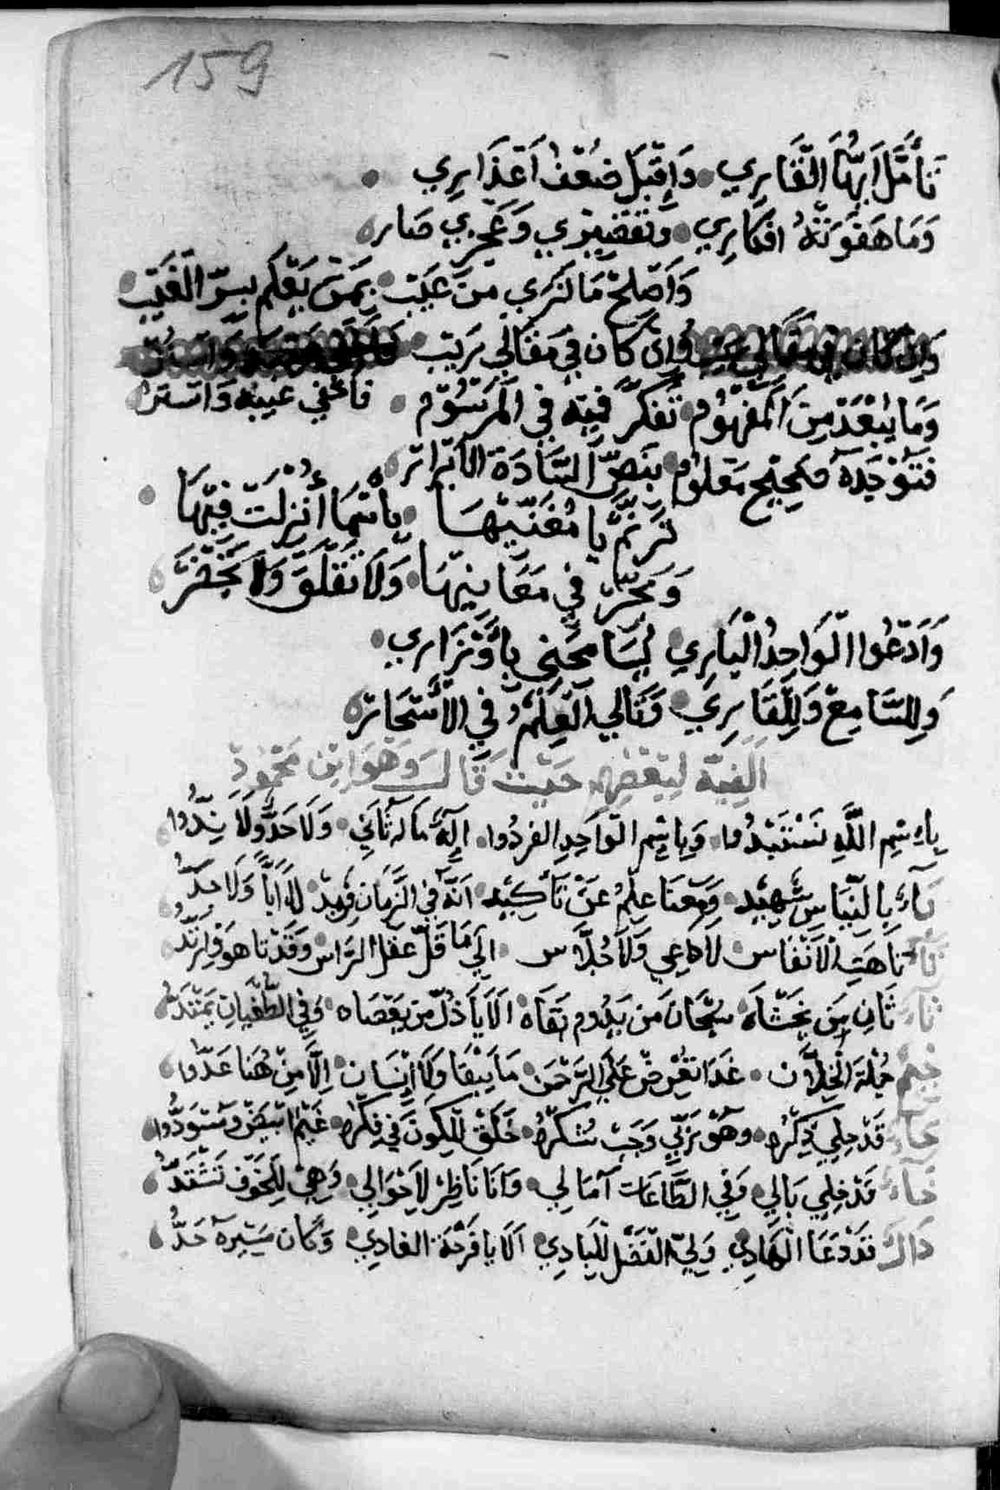 159
تَأَمَّلْ اَيُّهَا الْقَارِي وَاِقْبَلْ ضُعْفْ اَعْذَارِي
وَمَا هَفْوَتْهُ افْكَارِي وَتَقْصِيرِي وَعَجْزِي صَار
وَاَصْلِحْ مَا تَرَى مِنْ عَيْبْ بِمَنْ يَعْلَم بِسِرِّ الْغَيْبْ
وَاِنْ كَان فِي مَقَالِي رَيْب
وَمَا يَبْعُدْ مِنَ الْمَفْهُوم تَفَكَّرْ فِيهْ فِي الْمَرْسُوْم فَاَخْفِي عَيْبَهْ وَاسْتَرْ
فَتَوْجَدْهُ صَحِيْح مَعْلُوْم بِنَصِّ السَّادَةِ الْاَبْرَار
تَرَنَّمْ يَا مُغَنِّيْهَا بِاسْمَا أُنْزِلَتْ فِيْهَا
فِي مَعَانِيْهَا وَلَا تَقْلَقْ وَلَا تَضْجَرْ
وَاَدْعُوا الْوَاحِدُ الْبَارِي يُسَامِحْنِي بِاَوْزَارِي
وَلِلسَّامِعْ وَلِلْقَارِي وَتَالِي الْعِلْمْ فِي الْاَسْحَارْ
اَلْفِيَّة لِبَعْضِهِم حَيْثُ قَالَ وَهُوَ ابْن مَحْمُودِ
بِاِسْمِ اللَّهِ نَسْتَبْدُوا وَبِاسْمِ الْوَاحِدِ الفردُوا اِلَهٌ مَا لَهُ ثَانِي وَلَا حَدٌّ وَلَا نِدُّوا
بَاءْ بِالنَّاسِ شَهِيْد وَمَعْنَا عِلْمُ عَنْ تَأْكِيْد اَنَّهُ فِي الزَّمَان فَرِيْد لَا اَبًّا وَلَا جَدُّ
تَاءْ تَاهَتِ الْاَنْفَاس لَا دَاعِي وَلَا جُلَّاس اِلَى مَا قَلَّ عَقْلْ الرَّاس
ثَاءْ ثَانِ مَنْ يَخْشَاهُ سُبْحَان مَن يَدُوم بَقَاهْ اَلَا يَا ذُلّ مَنْ يَعْصَاه وَفِي الطُّغْيَانِ يَمْتَدُّ
جِيْم جُمْلَةَ الْخِلَّان غَدًا تُعْرَضْ عَلَى الرَّحْمَن مَا يَبْقَا وَلَا اِنْسَان اِلَّا مِنْ هُنَا عَدُّوا
حَاءْ قَدْ حِلِي ذِكْرُه وَهُوْ رَبِّي وَجَبْ شُكْرُهْ خَلَقْ لِلْكَوْن فِي فِكْرُهْ
خَاءْ قَدْ خِلِي بَالِي وَفِي الطَّاعَات آمَالِي وَاَنَا نَاظِرْ لِاَحْوَالِي وَهِيْ لِلْخَوْفْ تَشْتَدُّ
دَال قَدْ دَعَا الْهَادِي وَلِيّ الْفَضْل لِلْبَادِي اَلَا يَا فَرْحَةَ الغَادِي وَكَان سَيْرَهْ جَدُّ